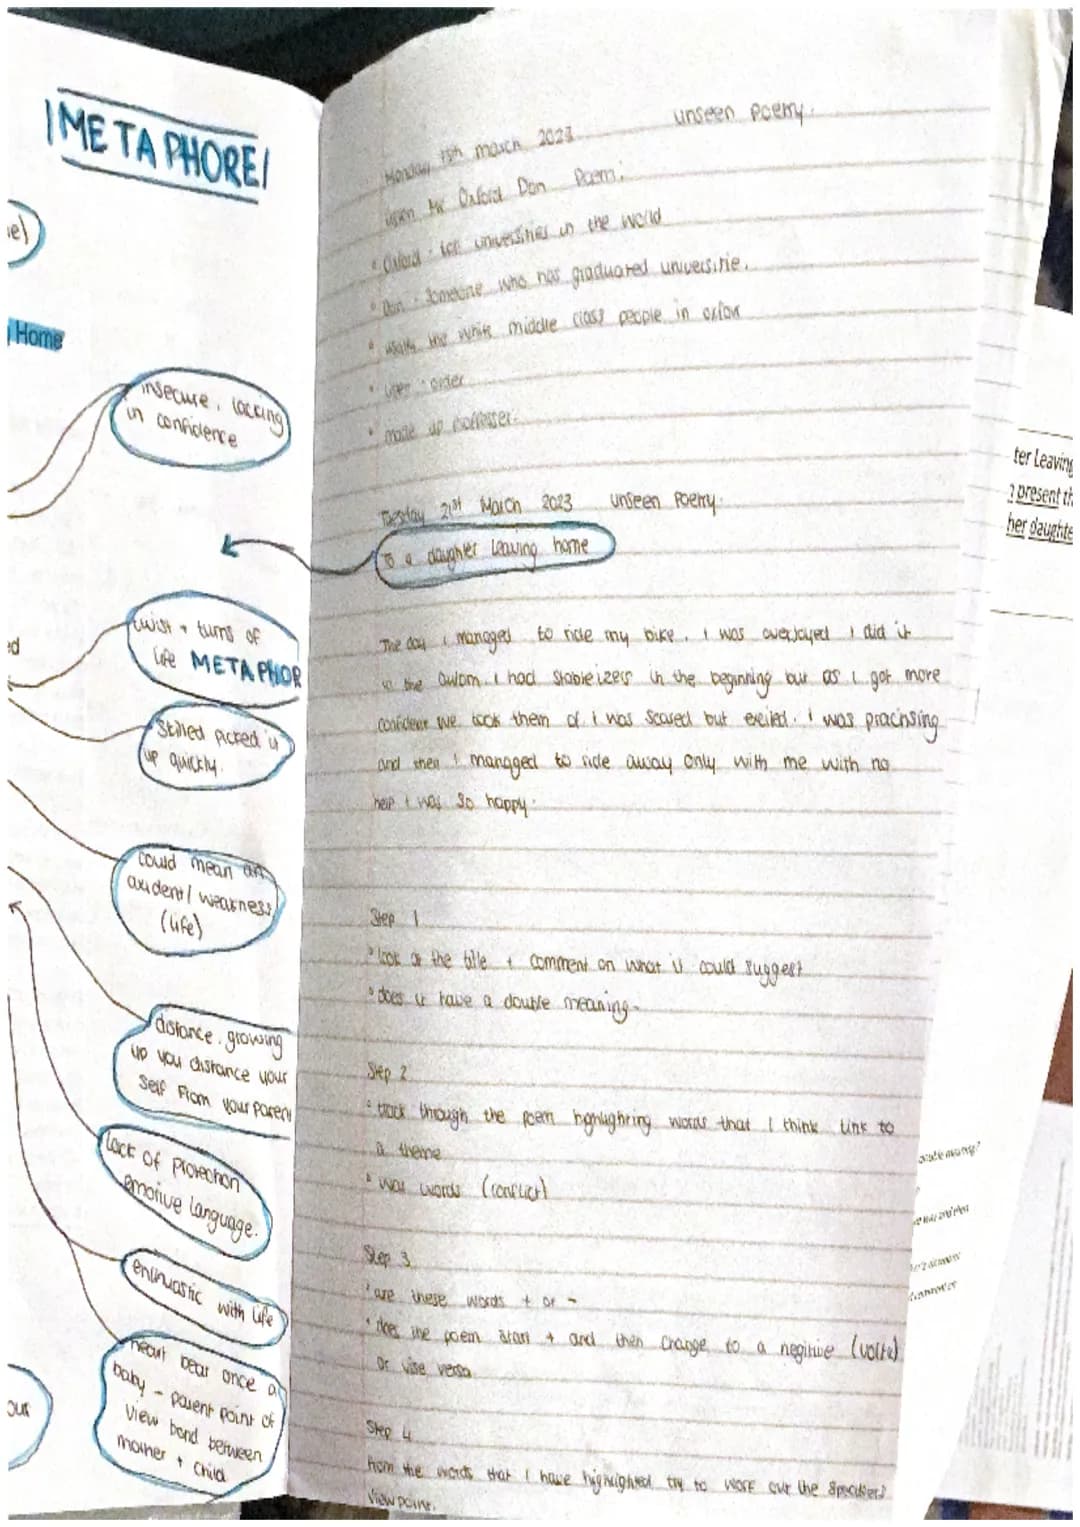 METAPHORE
Home
insecure, lacking
in confidence
twist + turns of
life METAPHOR
Skilled picked it
up quickly.
could mean an
axident / weakness
(life)
distance, growing
up you distance your
self from your paren
lack of protection
emotive language.
enthuastic with life
heart beat once a
baby - parent point of
view bond between
mother + child
our
unseen poemy.
Monday march 2023
Oxford Don Poem.
Oxford - universities in the world
Don - Someone who has graduated universitie.
the white middle class people in
order
made up
Tuesday 21st March 2023 unseen Poetry.
To a daughter leaving home
The day I managed to ride my bike. I was overjoyed I did it
in the I had Stableizers in the beginning but as I got more
confident we took them of I was scared but exited. I was practising
and then I managed to ride away only with me with no
help I was so happy.
Step 1
look at the title + comment on what it could suggest
does it have a double meaning.
Step 2
track through the poem highlighting words that I think link to
a theme
war words (conflict)
Step 3
are these words + or -
does the poem start + and then change to a negitive (volta)
or vise versa
Step 4
from the words that I have highlighted try to work out the speakers
viewpoint.
ter Leaving
present th
her daughte
ouble meaning?